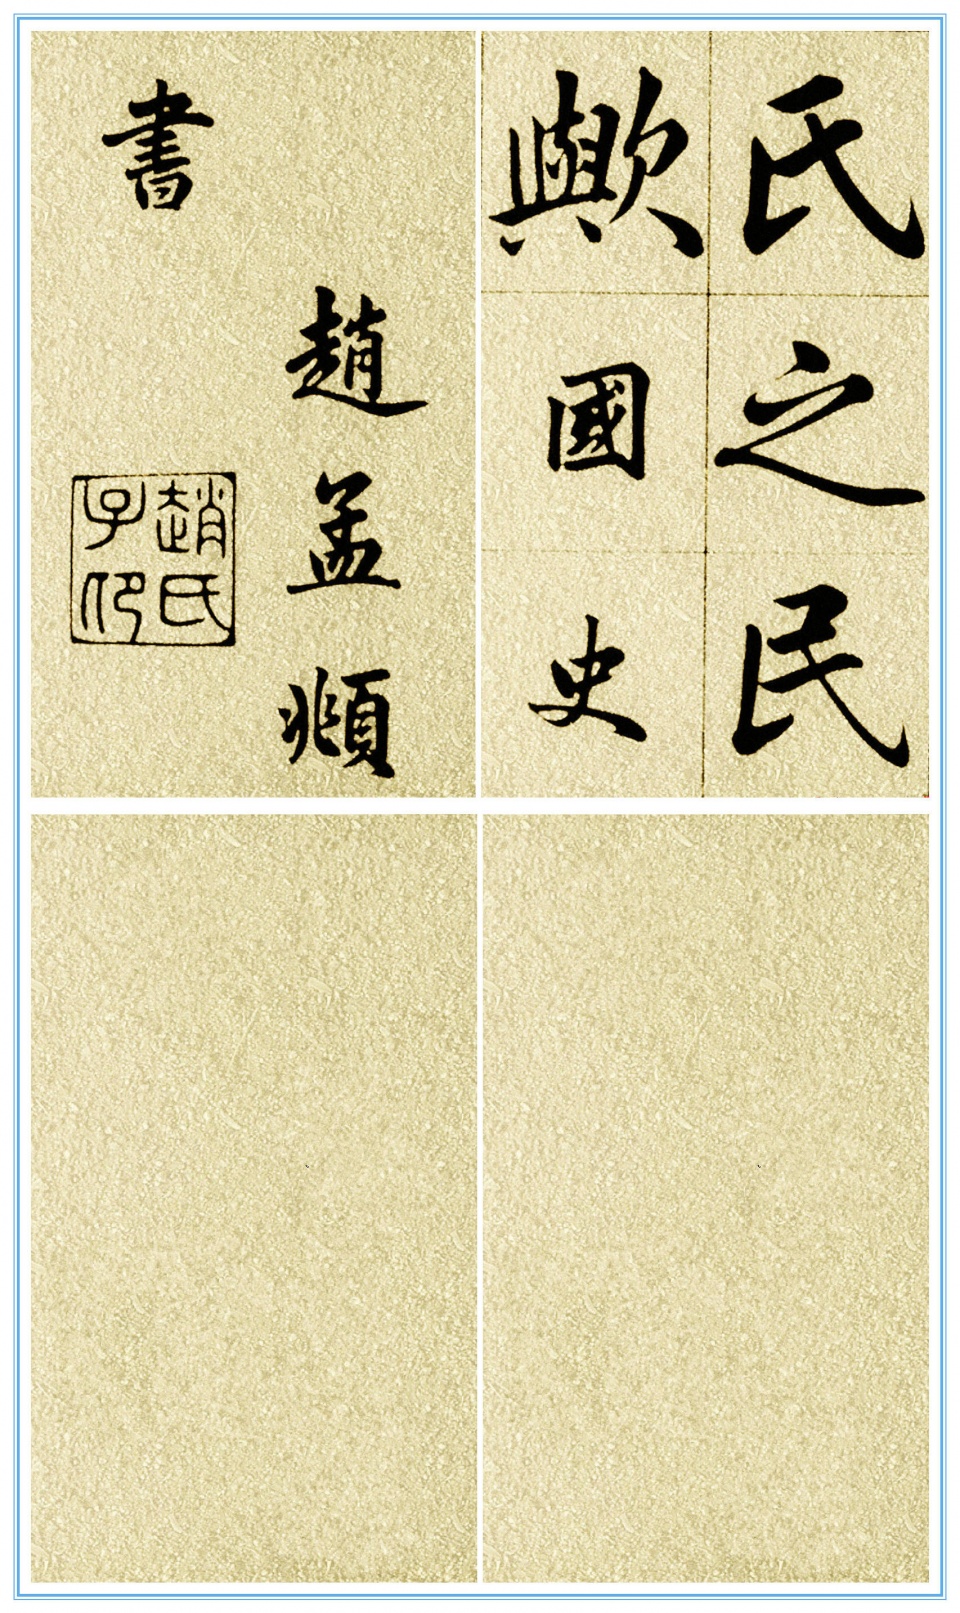 氏之民
歟國史
趙孟頫
書
趙氏
子印